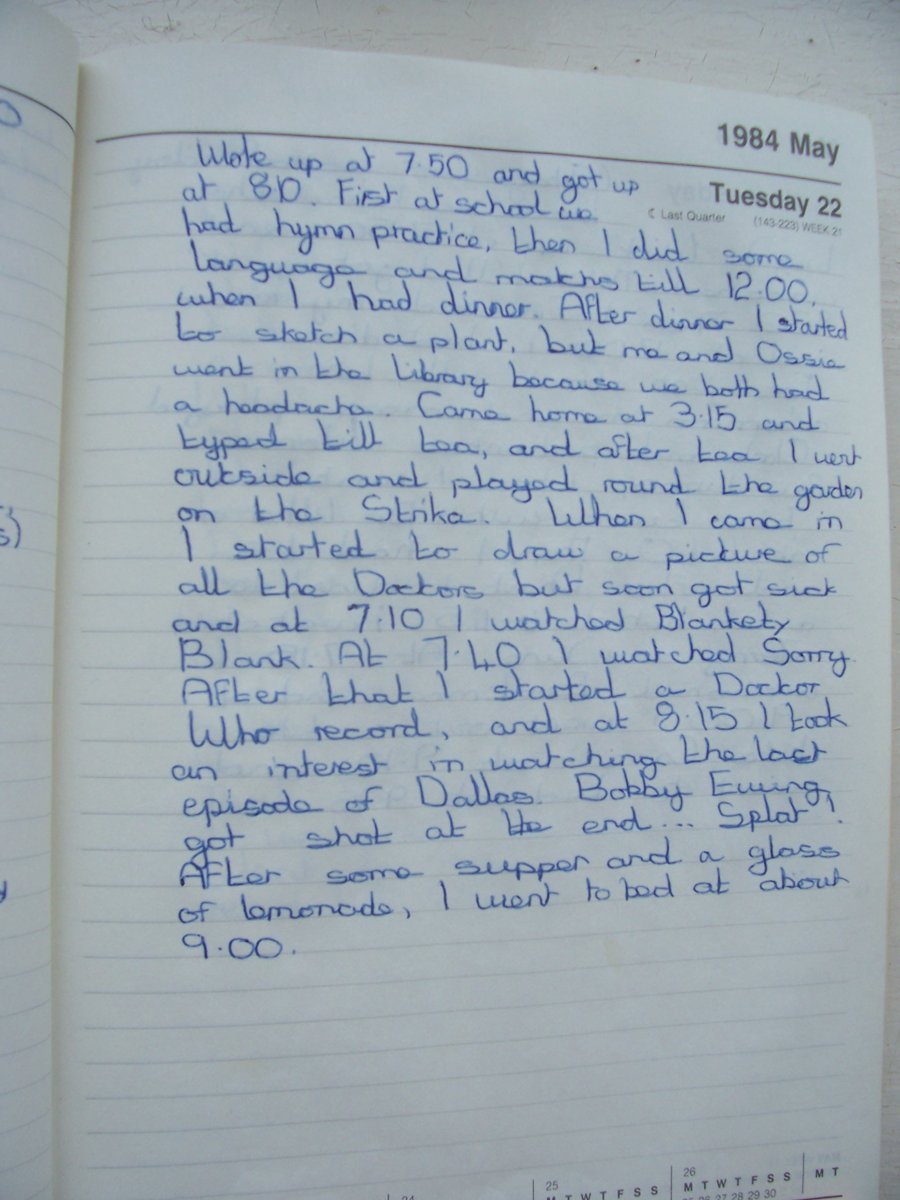 1984 May
Tuesday 22
☾ Last Quarter (143-223) WEEK 21
Woke up at 7.50 and got up
at 8.10. First at school we
had hymn practice, then I did some
language and maths till 12.00,
when I had dinner. After dinner I started
to sketch a plant, but me and Ossie
went in the library because we both had
a headache. Came home at 3.15 and
typed till tea, and after tea I went
outside and played round the garden
on the Strika. When I came in
I started to draw a picture of
all the Doctors but soon got sick
and at 7.10 I watched Blankety
Blank. At 7.40 I watched Sorry.
After that I started a Doctor
Who record, and at 8.15 I took
an interest in watching the last
episode of Dallas. Bobby Ewing
got shot at the end... Splat!
After some supper and a glass
of lemonade, I went to bed at about
9.00.
25
M T W T F S S
26
M T W T F S S
M T